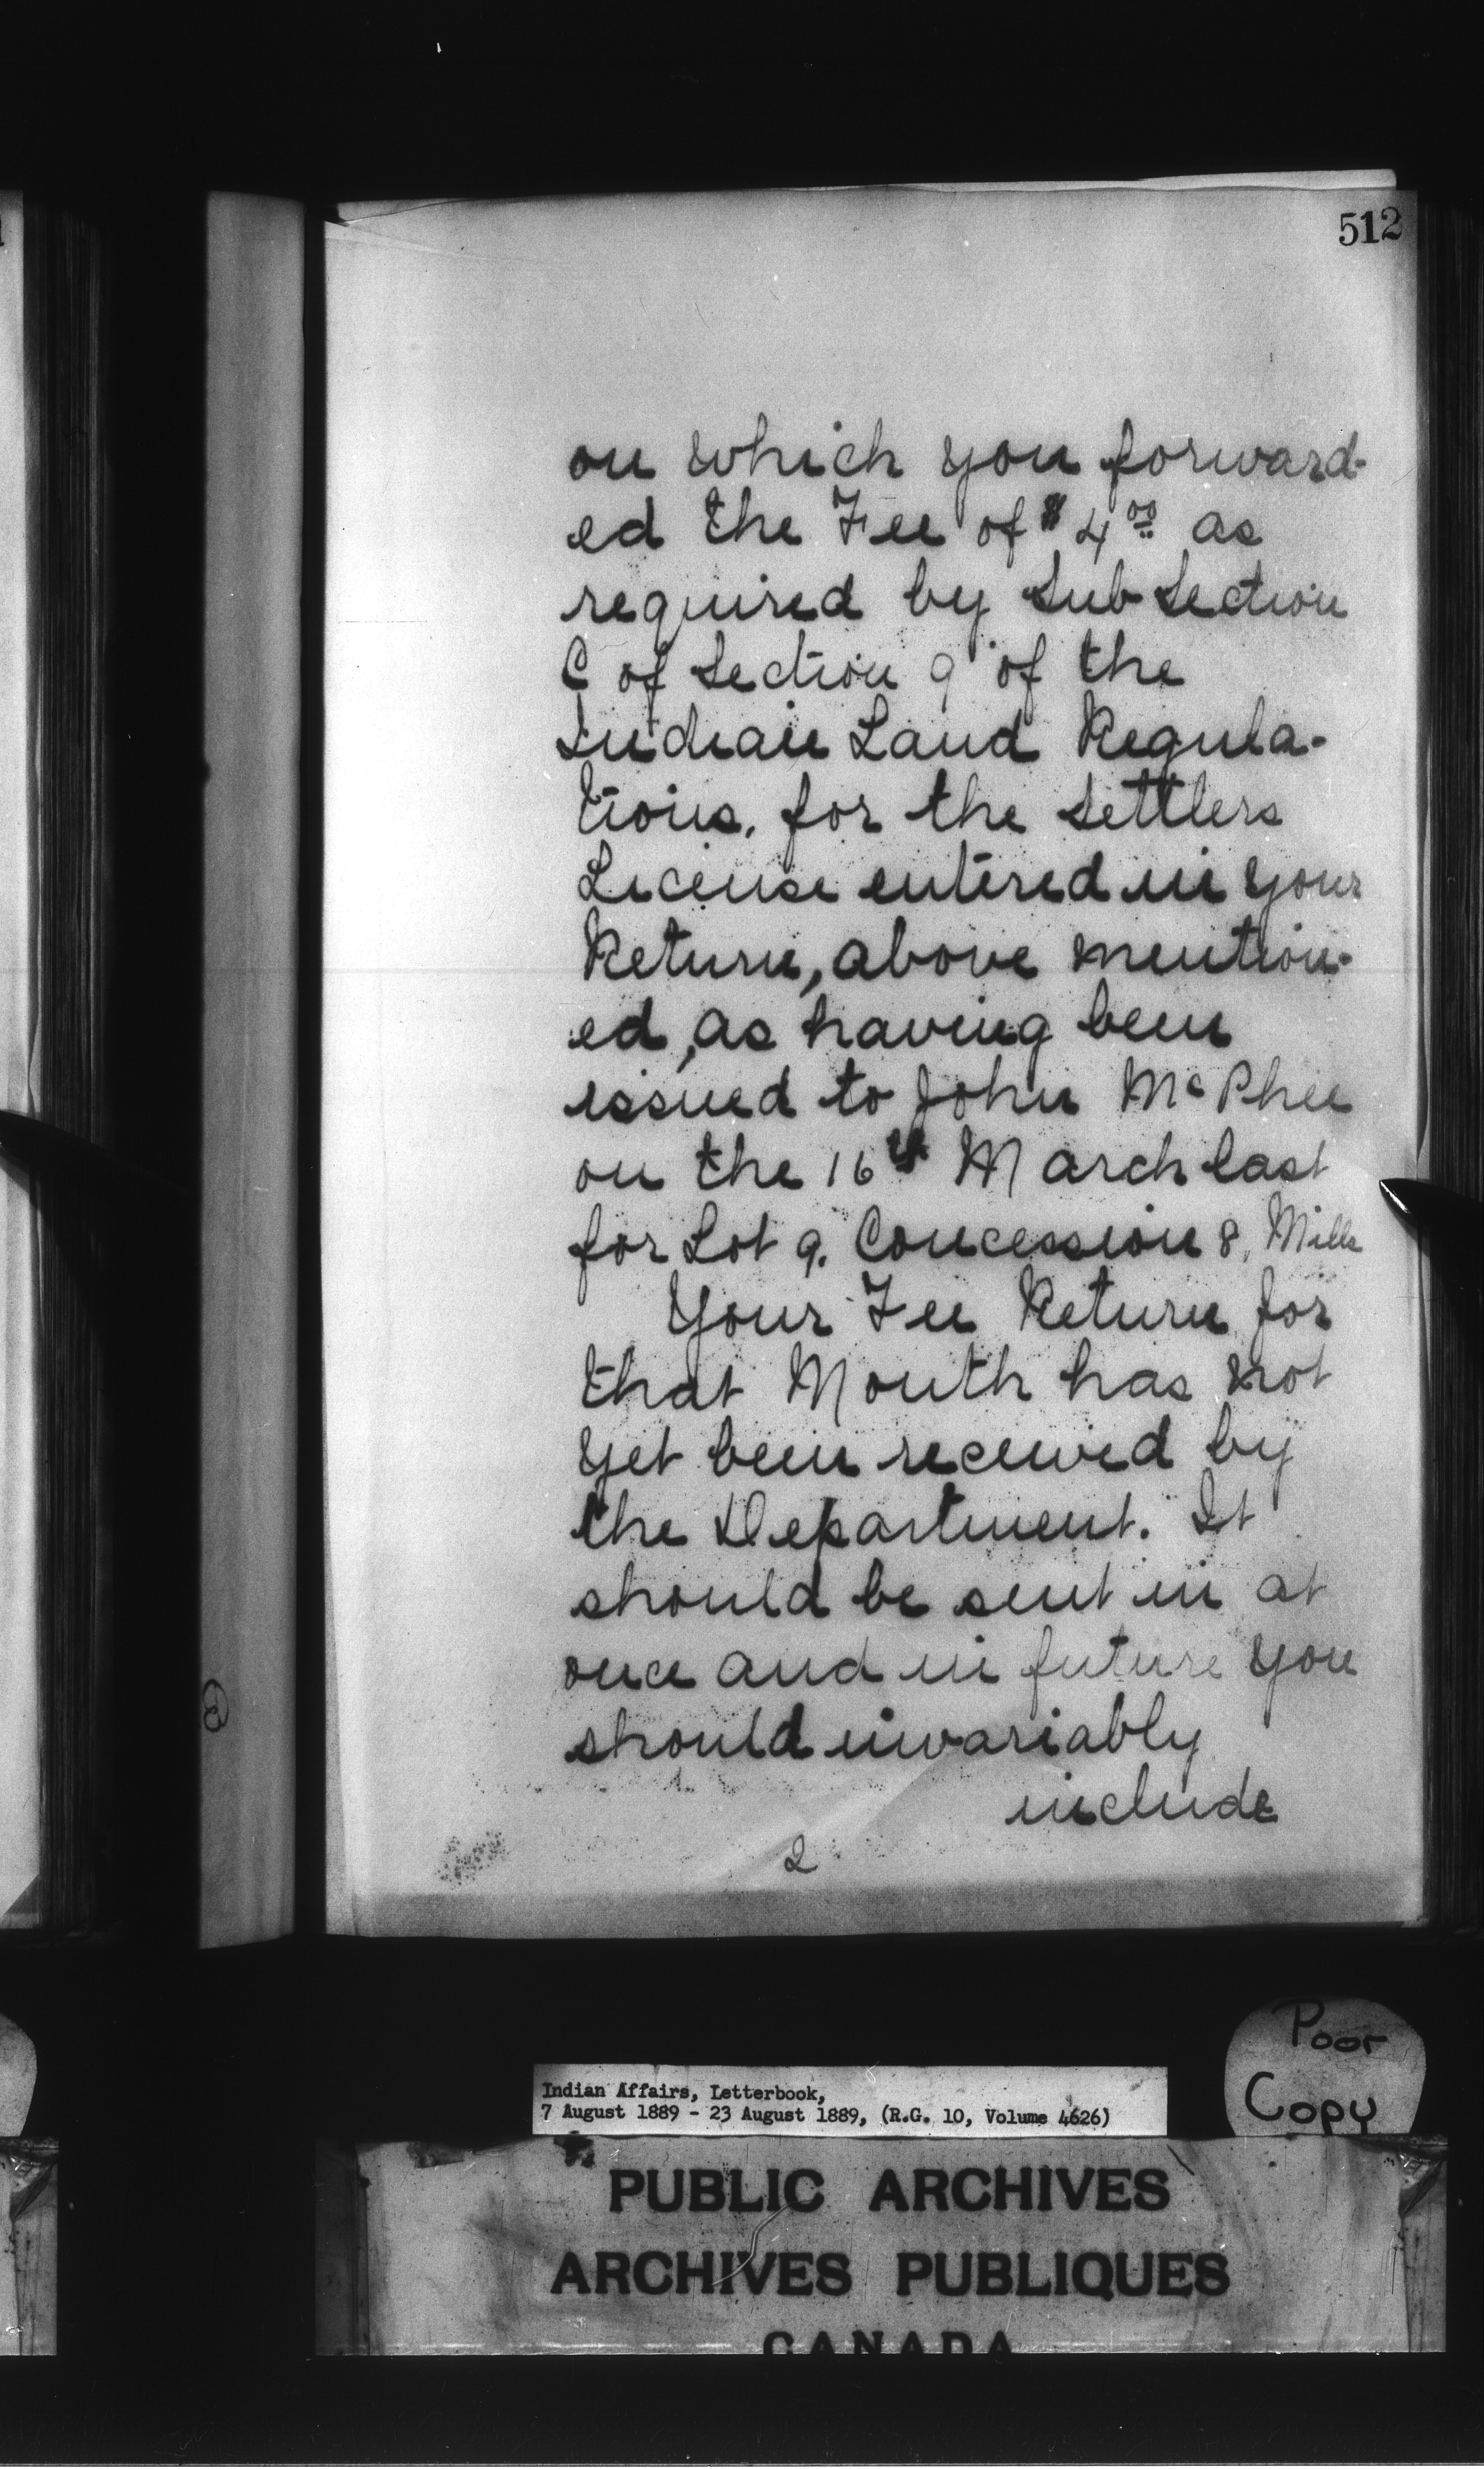 512
on which you forward-
ed the Fee of $4.00 as
required by Sub Section
C of Section 9 of the
Indian Land Regula-
tions, for the Settlers
License entered in your
Return, above mention-
ed, as having been
issued to John McPhee
on the 16th March last
for Lot 9. Concession 8, Mills
Your Fee Return for
that Month has not
yet been received by
the Department. It
should be sent in at
once and in future you
should invariably
include
2
Poor
Copy
Indian Affairs, Letterbook,
7 August 1889 - 23 August 1889, (R.G. 10, Volume 4626)
PUBLIC ARCHIVES
ARCHIVES PUBLIQUES
CANADA